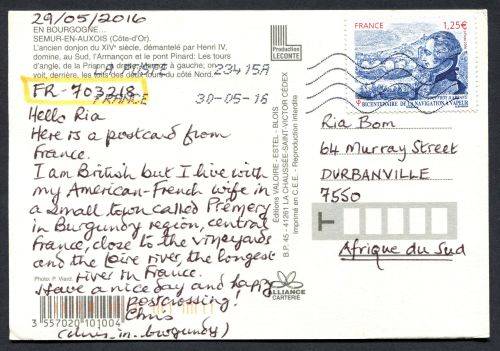 29/05/2016
EN BOURGOGNE...
SEMUR-EN-AUXOIS (Côte-d'Or).
L'ancien donjon du XIVe siècle, démantelé par Henri IV,
domine, au Sud, l'Armançon et le pont Pinard: Les tours
d'angle, de la Prison à droite, à gauche; on
voit, derrière, les toits des du côté Nord.
LA POSTE 23415A
FR-703218
FRANCE 30-05-16
Hello Ria
Here is a postcard from
France.
I am British but I live with
my American-French wife in
a small town called Prémery
in Burgundy region, central
France, close to the vineyards
and the Loire river, the longest
river in France.
Have a nice day and happy
postcrossing!
Chris
(chris_in_burgundy)
Photo: P. Viard.
3 557020 101004
Production
LECONTE
Editions VALOIRE - ESTEL - BLOIS
B.P. 45 - 41261 LA CHAUSSÉE-SAINT-VICTOR CEDEX
Imprimé en C.E.E. - Reproduction interdite
ALLIANCE
CARTERIE
FRANCE 1,25€
BICENTENAIRE DE LA NAVIGATION A VAPEUR
Ria Bom
64 Murray Street
DURBANVILLE
7550
T
Afrique du Sud